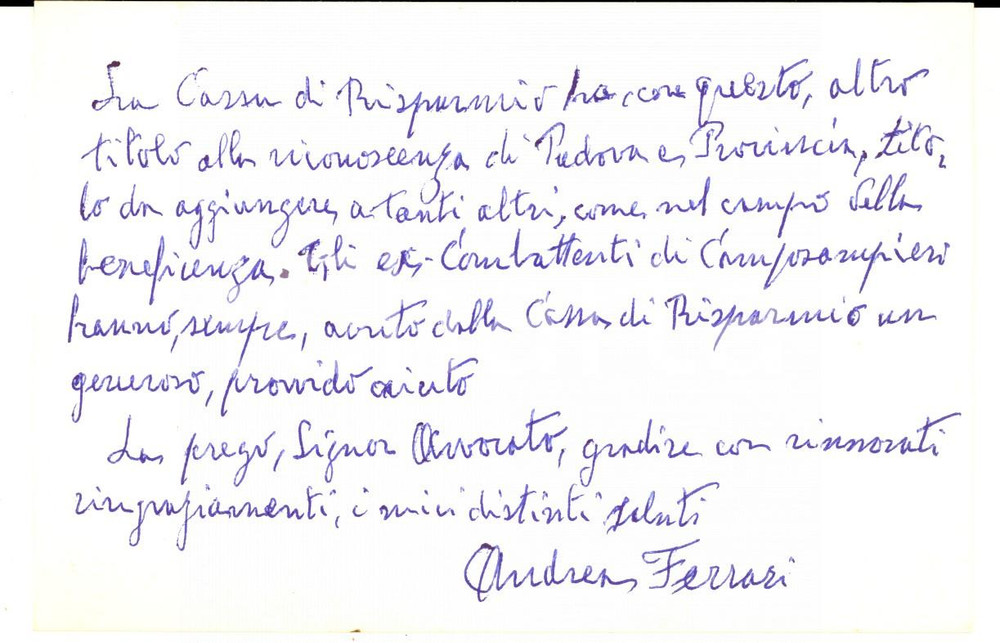 La Cassa di Risparmio ha, con questo, altro
titolo alla riconoscenza di Padova e Provincia, tito-
lo da aggiungere a tanti altri, come nel campo della
beneficenza. Gli ex-Combattenti di Camposampiero
hanno, sempre, avuto dalla Cassa di Risparmio un
generoso, provvido aiuto
La prego, Signor Avvocato, gradire con rinnovati
ringraziamenti, i miei distinti saluti
Andrea Ferrari